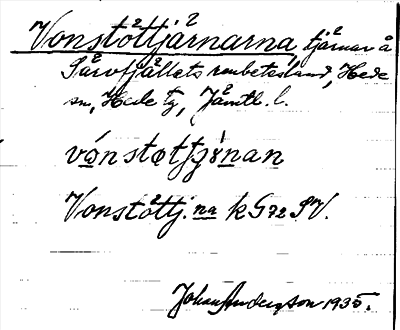 Vonstöttjärnarna, tjärnar å
Särvfjällets renbetesland, Hede
sn, Hede tg, Jämtl. l.
vónstøttjànan
Vonstöttj.na k G72 SV.
Johan Anderzson 1935.